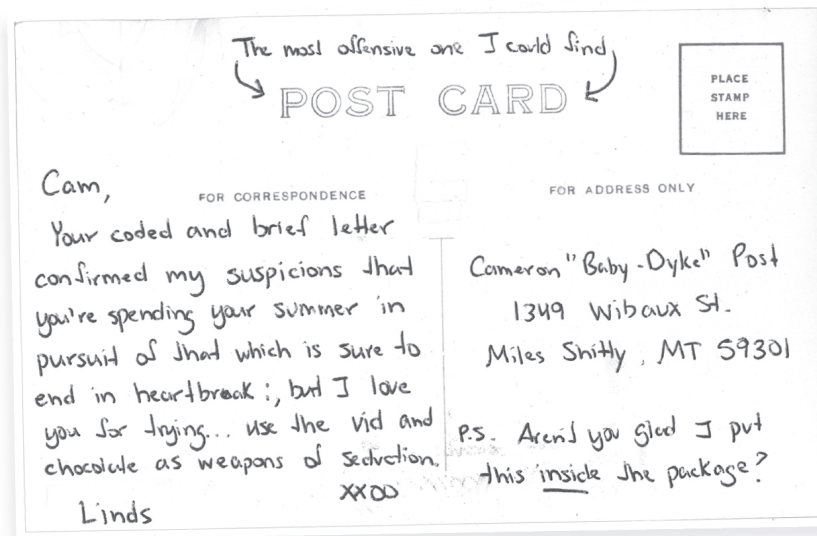 The most offensive one I could find
POST CARD
PLACE
STAMP
HERE
Cam,
FOR CORRESPONDENCE
Your coded and brief letter
confirmed my suspicions that
you're spending your summer in
pursuit of that which is sure to
end in heartbreak:, but I love
you for trying... use the vid and
chocolate as weapons of seduction.
XXOO
Linds
FOR ADDRESS ONLY
Cameron "Baby-Dyke" Post
1349 Wibaux St.
Miles Shitty, MT 59301
P.S. Aren't you glad I put
this inside the package?